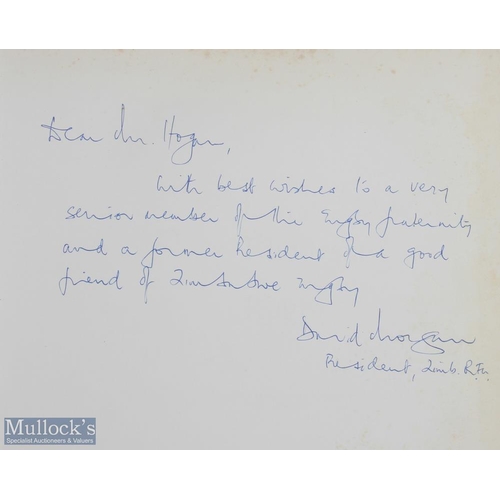 Dear Mr. Hogan,
With best wishes to a very
senior member of the rugby fraternity
and a former President of a good
friend of Zimbabwe rugby
David Morgan
President, Zimb. R.F.U.
Mullock's
Specialist Auctioneers & Valuers